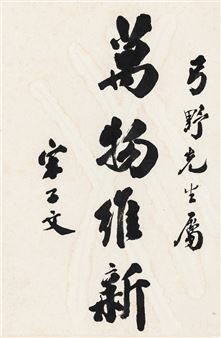 弓野先生屬
萬物維新
宋子文